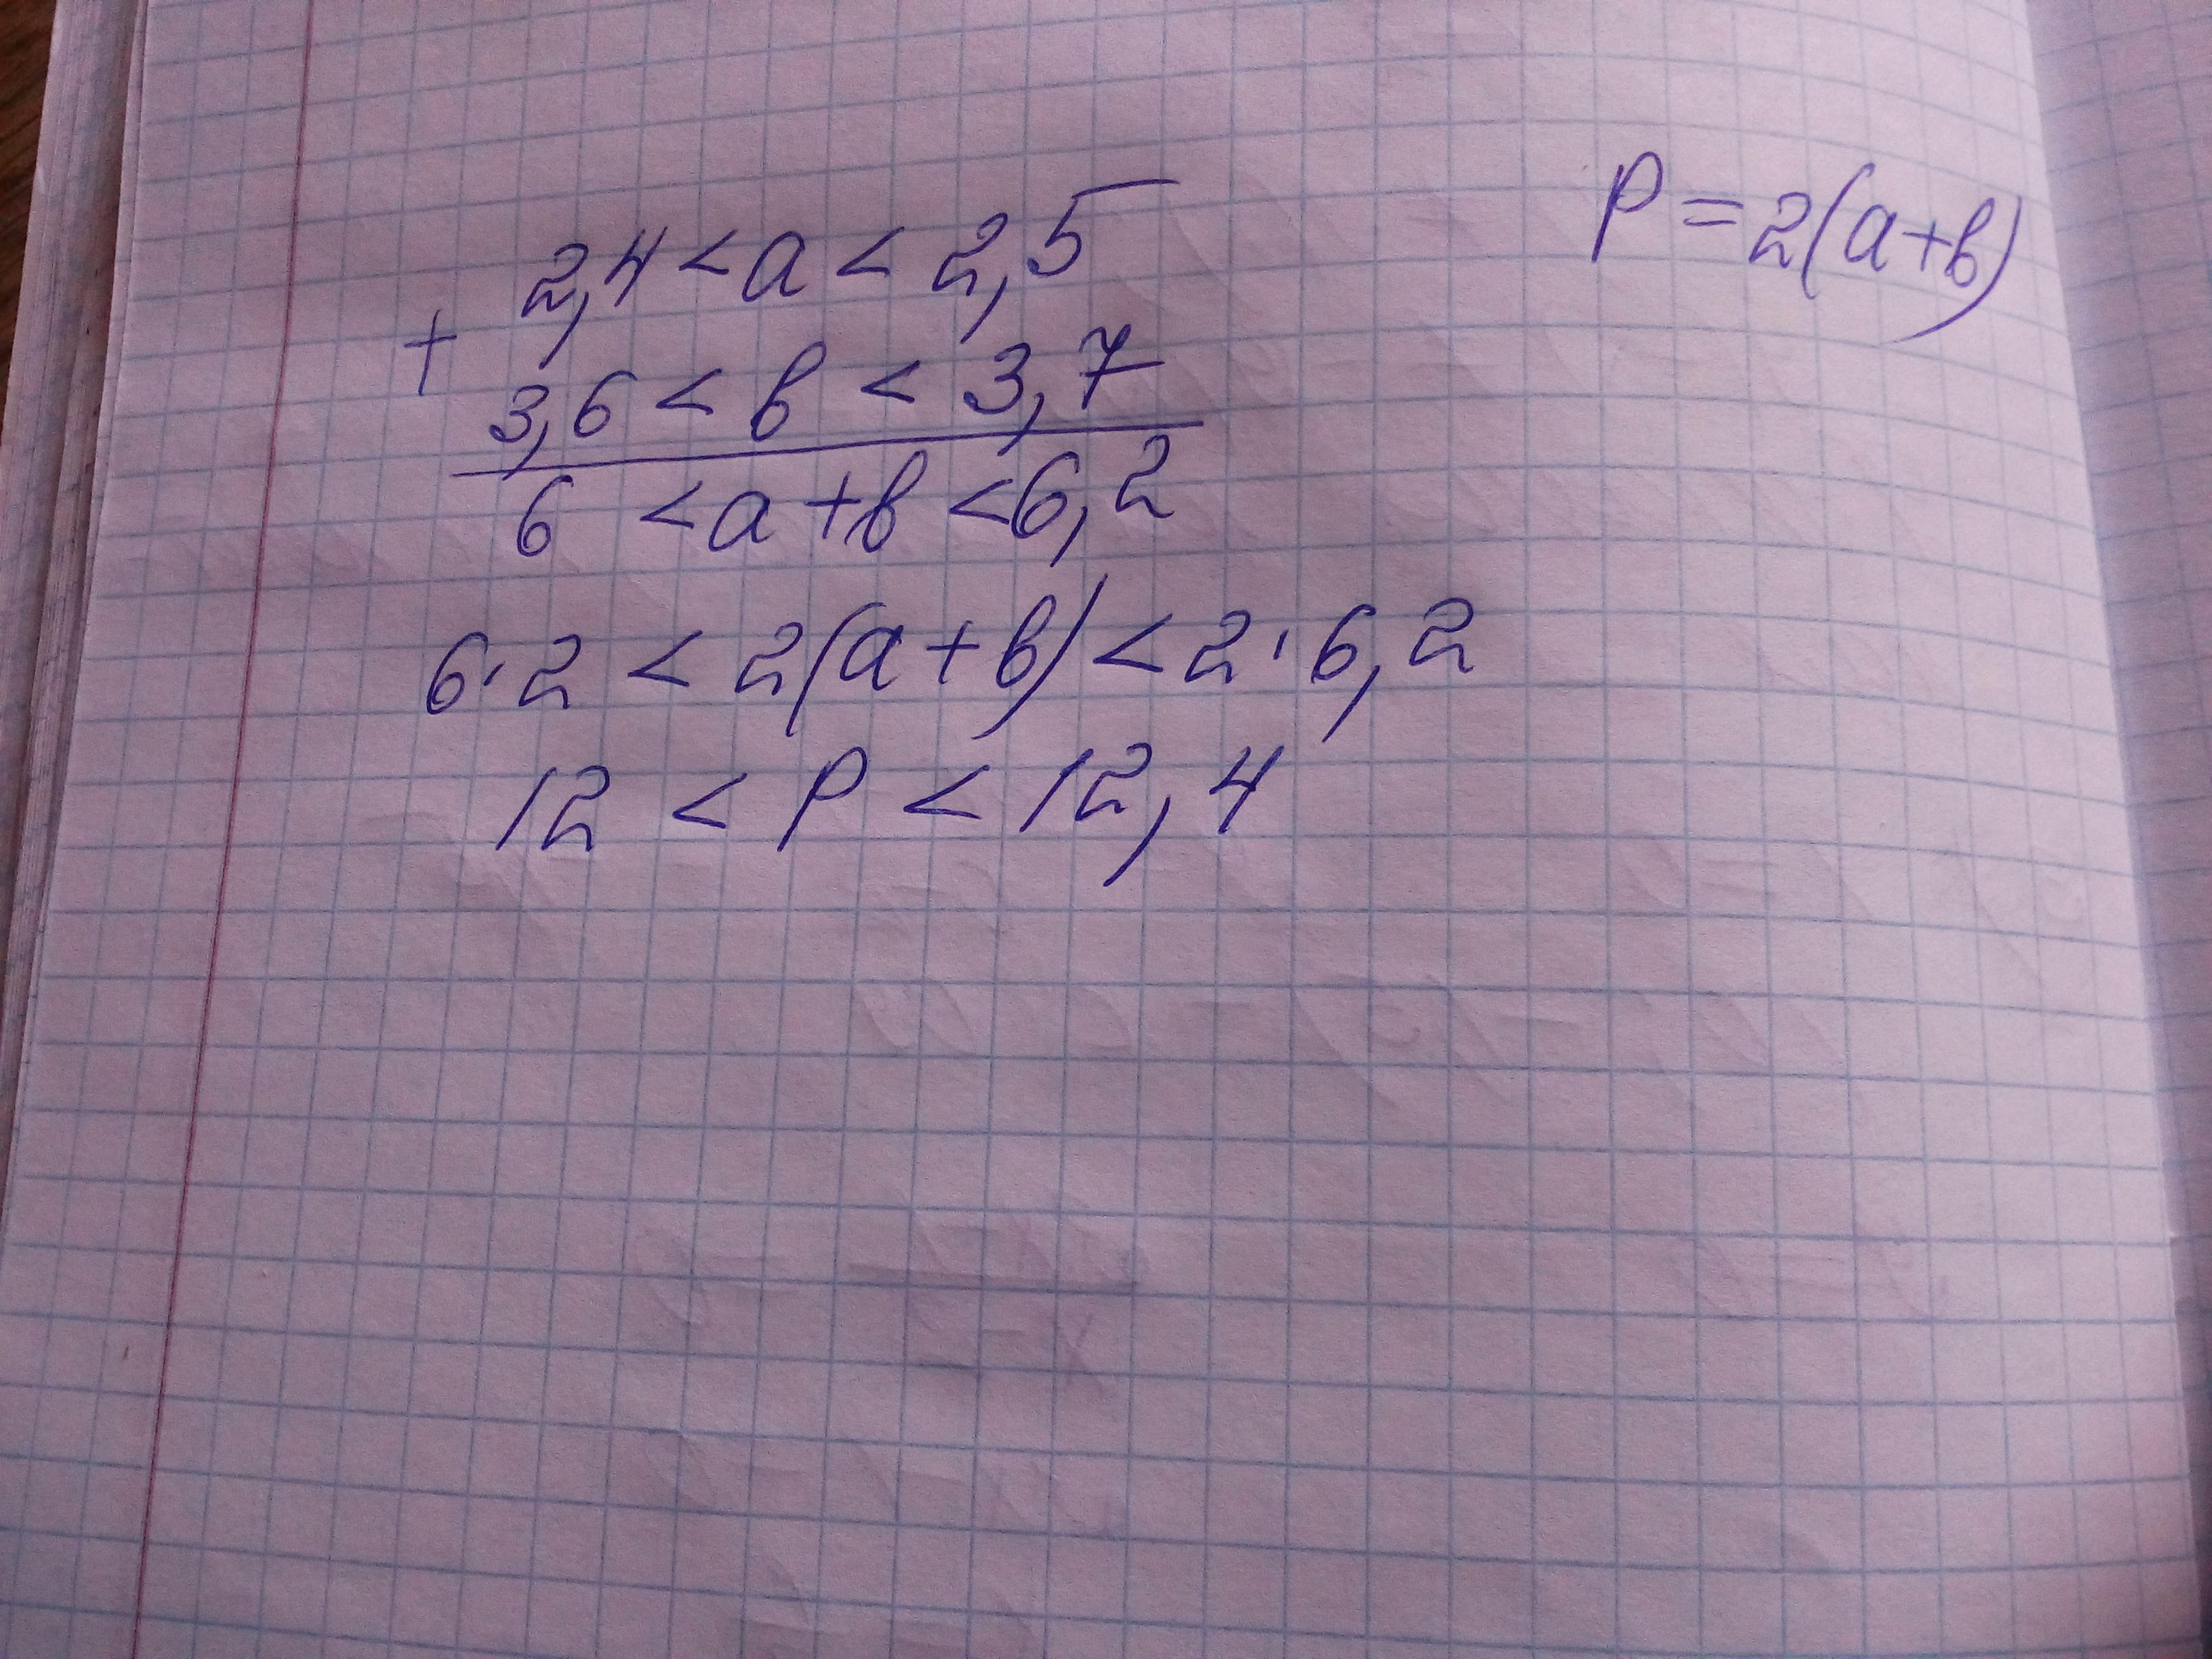 2,4 < a < 2,5
P = 2(a+b)
+
3,6 < b < 3,7
6 < a + b < 6,2
6·2 < 2(a+b) < 2·6,2
12 < P < 12,4